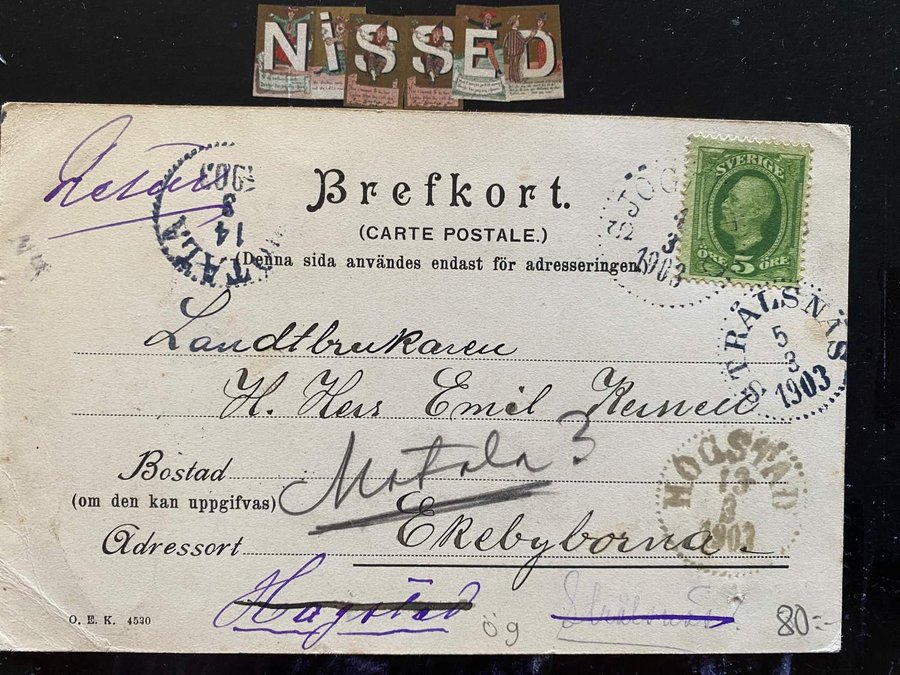 NISSED
Retur
MOTALA
14
3
1903
Brefkort.
(CARTE POSTALE.)
(Denna sida användes endast för adresseringen.)
SVERIGE
ÖRE 5 ÖRE
3
1903
STRÅLSNÄS
5
3
1903
Landtbrukaren
H. Herr Emil
Motala 3
Bostad
(om den kan uppgifvas)
HOGSTAD
13
3
1903
Adressort Ekebyborna
Hogstad
Strålsnäs
O. E. K. 4530
ög
80:-